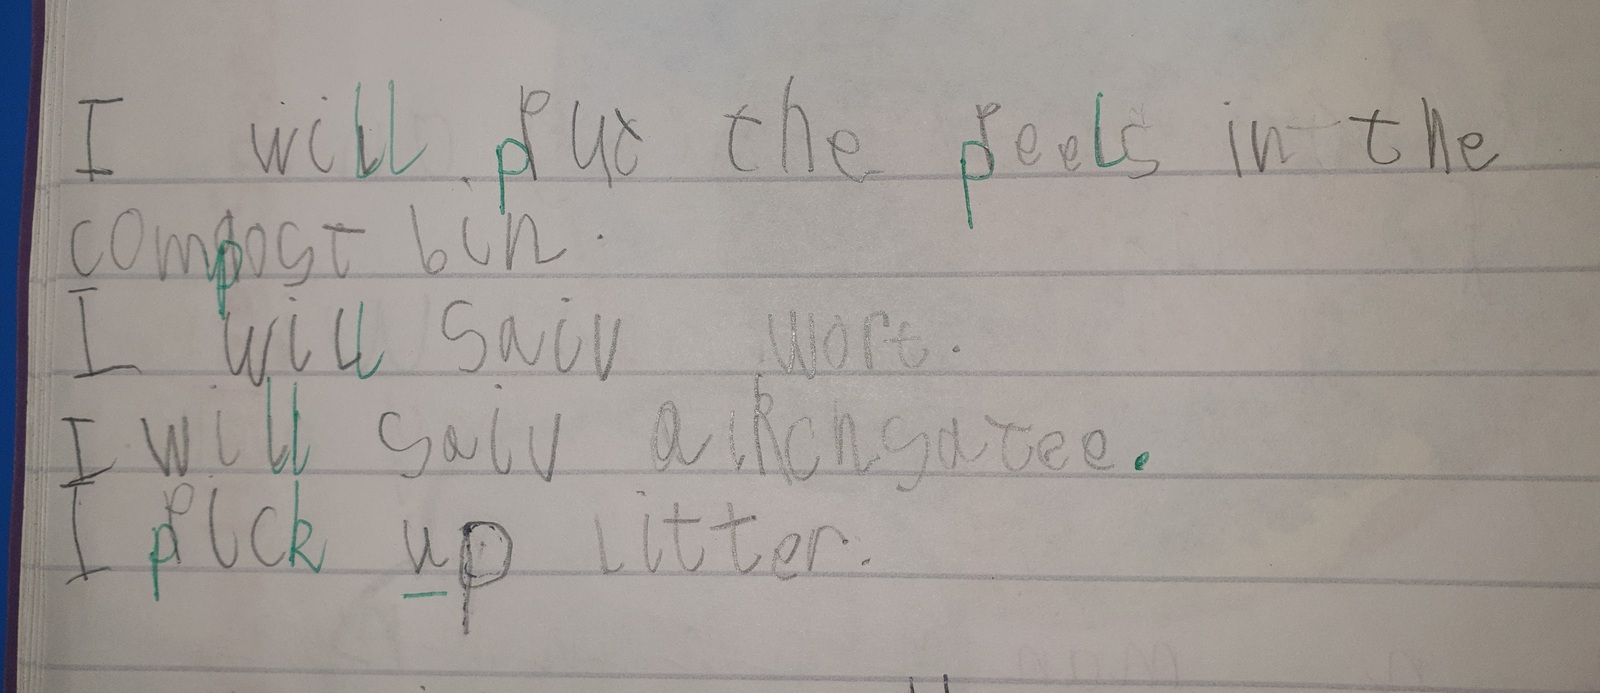 I will put the peels in the
compost bin.
I will saiv wort.
I will saiv
I pick up litter.